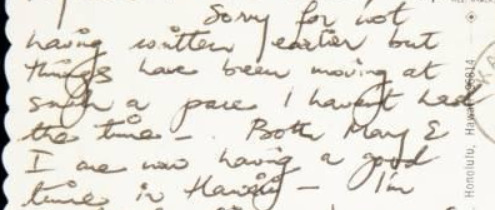 Sorry for not
having written earlier but
things have been moving at
such a pace I havent had
the time - Both Mary &
I are now having a good
time in Hawaii - I'm
Honolulu, Hawaii 96814